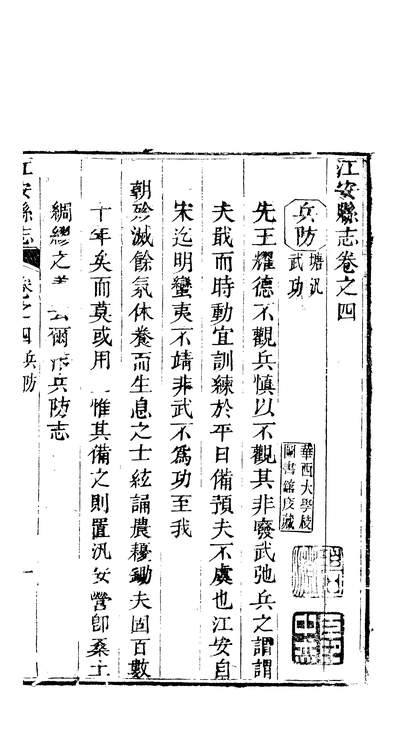 江安縣志卷之四
兵防 塘汛 武功
先王耀德不觀兵慎以不觀其非廢武弛兵之謂謂
夫戢而時動宜訓練於平日備預夫不虞也江安自
宋迄明蠻夷不靖非武不為功至我
朝殄滅餘氛休養而生息之士絃誦農耰鋤夫固百數
十年矣而莫或用 惟其備之則置汛安營即桑土
綢繆之 爾作兵防志
江安縣志 卷之四兵防 一
華西大學校
圖書館庋藏